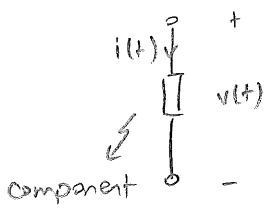 +
i(t)
v(t)
component
-